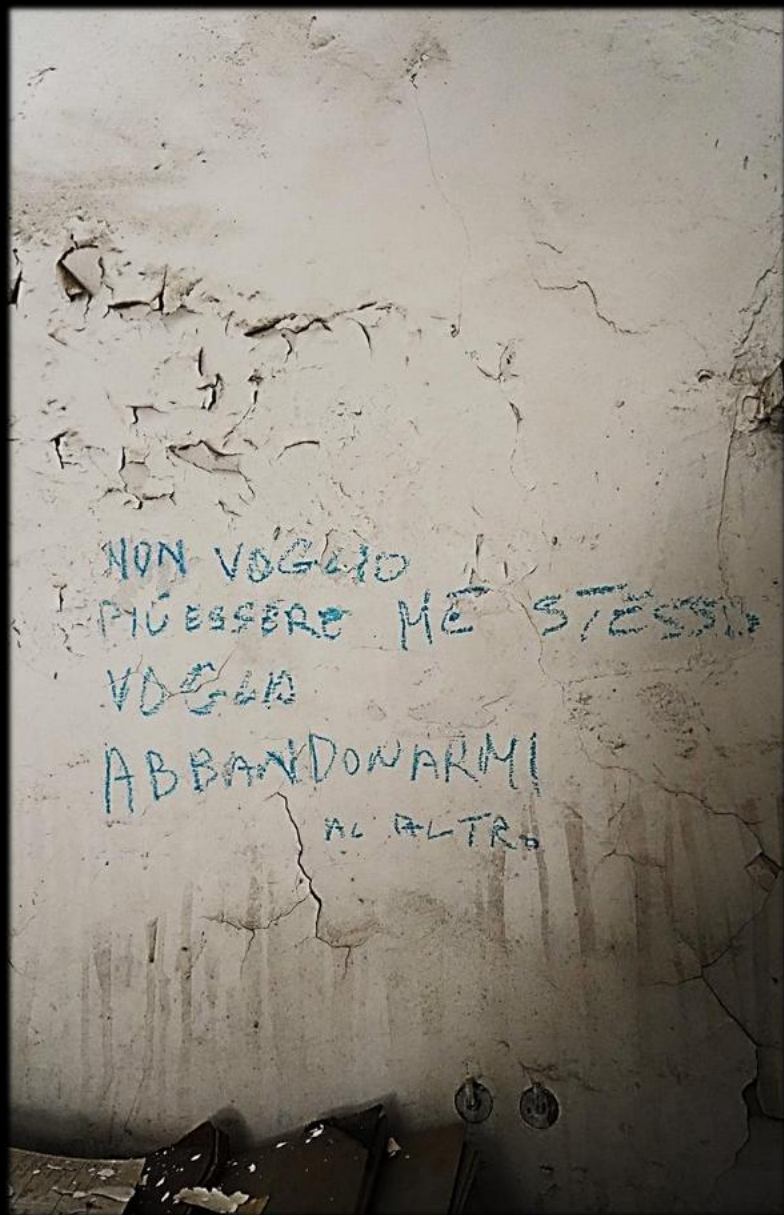 NON VOGLIO
PIÚ ESSERE ME STESSO
VOGLIO
ABBANDONARMI
AL ALTRO